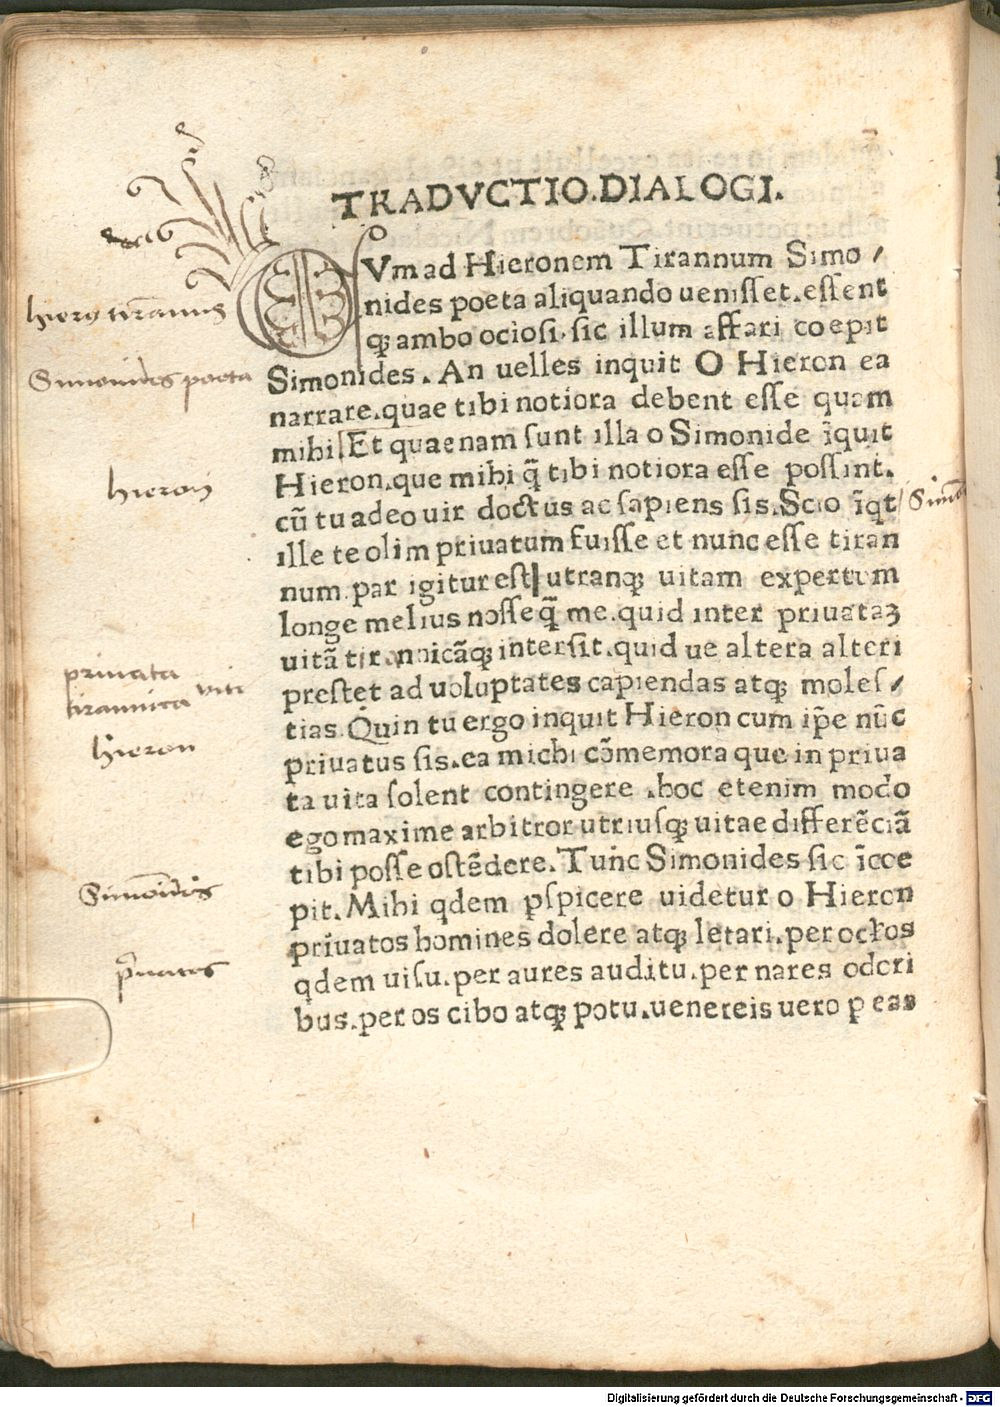 TRADVCTIO.DIALOGI.
CVm ad Hieronem Tirannum Simo/
nides poeta aliquando uenisset.essent
q; ambo ociosi.sic illum affari coepit
Simonides. An uelles inquit O Hieron ea
narrare.quae tibi notiora debent esse quam
mihi|Et quaenam sunt illa o Simonide īquit
Hieron.que mihi q̄ tibi notiora esse possint.
cū tu adeo uir doctus ac sapiens sis.Scio īqt
ille te olim priuatum fuisse et nunc esse tiran
num.par igitur est|utranq; uitam expertum
longe melius nosse q̄ me.quid inter priuataȝ
uitā tirannicāq; intersit.quid ue altera alteri
prestet ad uoluptates capiendas atq; moles/
tias.Quin tu ergo inquit Hieron cum ip̄e nūc
priuatus sis.ea michi cōmemora que in priua
ta uita solent contingere .hoc etenim modo
ego maxime arbitror utriusq; uitae differēciā
tibi posse ostēdere.Tunc Simonides sic īcoe
pit.Mihi qdem pspicere uidetur o Hieron
priuatos homines dolere atq; letari.per oc̄los
qdem uisu.per aures auditu.per nares odori
bus.per os cibo atq; potu.uenereis uero p eas
hiero tirānus
Simonides poeta
hieron
Simō
priuata
tirannica vita
hieron
Simōides
p̄uatos
Digitalisierung gefördert durch die Deutsche Forschungsgemeinschaft - DFG